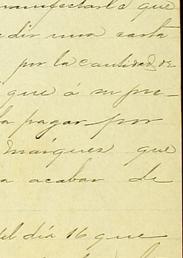 manifestarle que
dir una carta
por la cantidad de
que á su pre-
la pagar por
Márquez que
a acabar de
del día 16 que